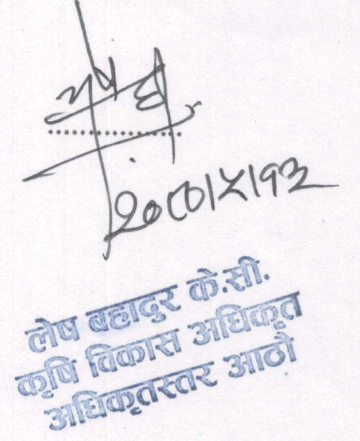 २०८०।५।१३
लेष बहादुर के.सी.
कृषि विकास अधिकृत
अधिकृतस्तर आठौं